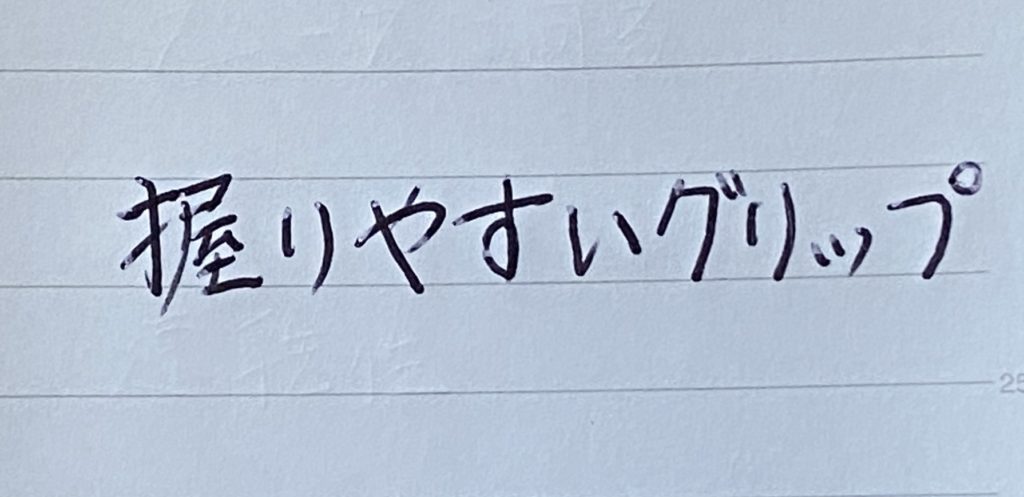 握りやすいグリップ
25